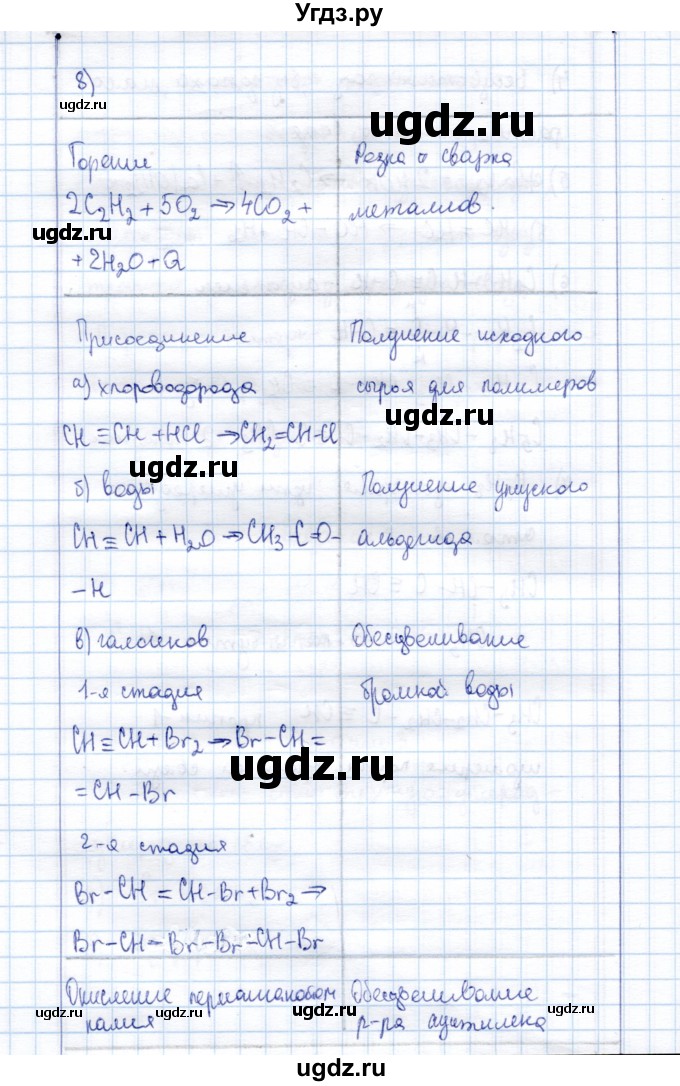 Угдз.ру
8)
ugdz.ru
ugdz.ru
Горение
Резка и сварка
2C₂H₂ + 5O₂ ⇒ 4CO₂ +
металлов.
ugdz.ru
+ 2H₂O + Q
ugdz.ru
Присоединение
Получение исходного
а) хлороводорода
сырья для полимеров
ugdz.ru
CH ≡ CH + HCl → CH₂=CH-Cl
ugdz.ru
б) воды
Получение уксусного
CH ≡ CH + H₂O ⇒ CH₃ - C = O -
альдегида
ugdz.ru
- H
в) галогенов
Обесцвечивание
1-я стадия
бромной воды
ugdz.ru
CH ≡ CH + Br₂ → Br - CH =
ugdz.ru
= CH - Br
2-я стадия
Br - CH = CH - Br + Br₂ ⇒
ugdz.ru
Br - CH - Br - Br - CH - Br
Окисление перманганатом
Обесцвечивание
ugdz.ru
калия
р-ра ацетилена
ugdz.ru
ugdz.ru